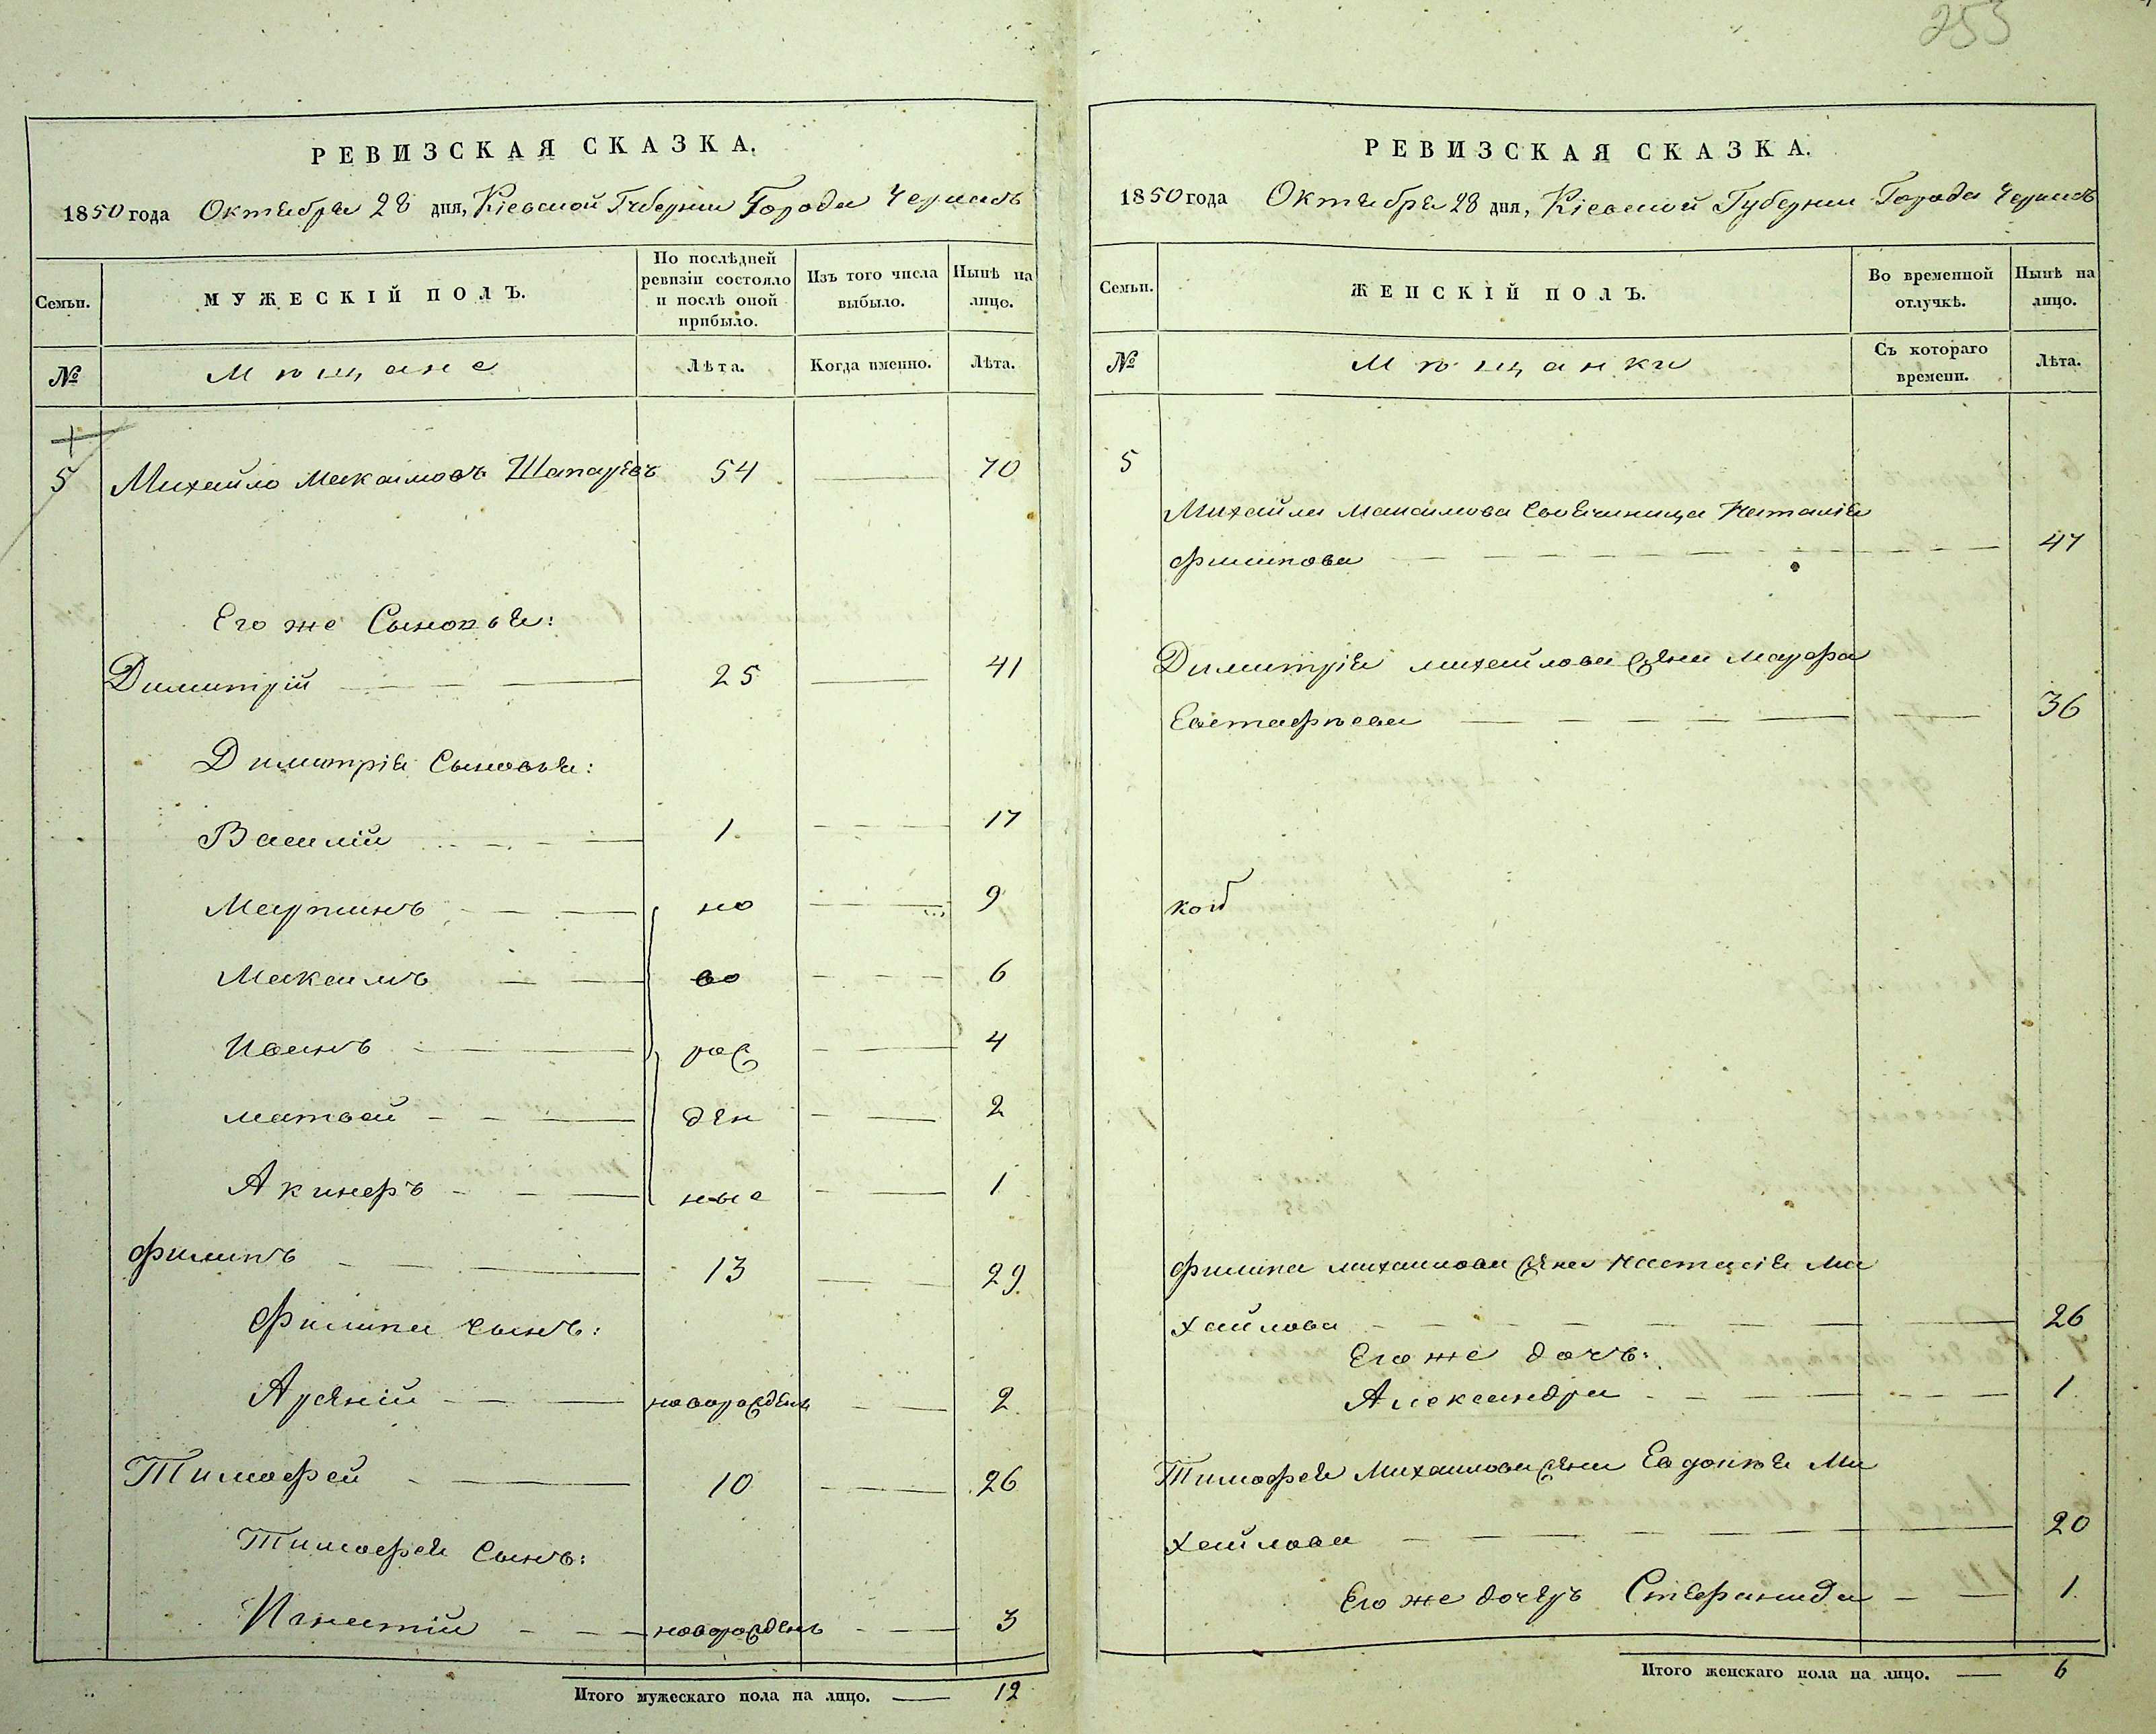 253
РЕВИЗСКАЯ СКАЗКА.
1850 года Октября 28 дня, Кіевской Губерніи Города Черкасъ
Семьи.
МУЖЕСКІЙ ПОЛЪ.
По послѣдней ревизіи состояло и послѣ оной прибыло.
Изъ того числа выбыло.
Нынѣ на лицо.
№
Мѣщане
Лѣта.
Когда именно.
Лѣта.
5 Михайло Максимовъ 54 — 70
Его же Сыновья:
Димитрій — 25 — 41
Димитрія Сыновья:
Василій — 1 — 17
Мартинъ — но — 9
Максимъ — во — 6
Иванъ — рож — 4
Матвей — ден — 2
Акинфъ — ные — 1
Филипъ — 13 — 29
Филипа сынъ:
Арсеній — новорожденъ — 2
Тимофей — 10 — 26
Тимофея Сынъ:
Игнатій — новорожденъ — 3
Итого мужескаго пола на лицо. — 12
РЕВИЗСКАЯ СКАЗКА.
1850 года Октября 28 дня, Кіевской Губерніи Города Черкасъ
Семьи.
ЖЕНСКІЙ ПОЛЪ.
Во временной отлучкѣ.
Нынѣ на лицо.
№
Мѣщанки
Съ котораго времени.
Лѣта.
5
Михайла Максимова Наталія
Филипова — 47
Димитрія Михайлова жена Марфа
Евстафѣева — 36
Филипа Михайлова жена Настасія Ми
хайлова — 26
Его же дочъ:
Александра — 1
Тимофея Михайлова жена Евдокія Ми
хайлова — 20
Его же дочеръ Стефанида — 1
Итого женскаго пола на лицо. — 6